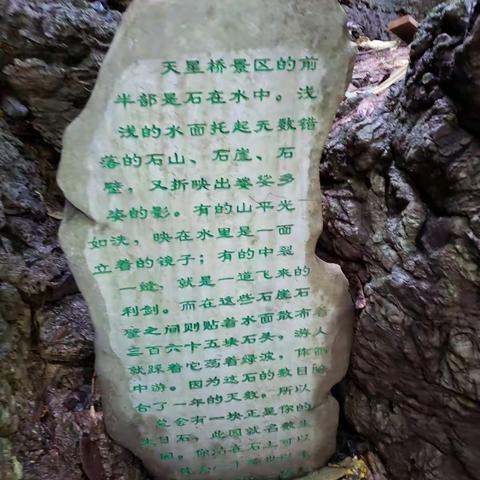 天星桥景区的前
半部是石在水中。浅
浅的水面托起无数错
落的石山、石崖、石
壁，又折映出婆娑多
姿的影。有的山平光
如洗，映在水里是一面
立着的镜子；有的中裂
一缝，就是一道飞来的
利剑。而在这些石崖石
壁之间则贴着水面散布着
三百六十五块石头，游人
就踩着它荡着绿波，
中游。因为这石的数目
合了一年的天数。所以
总会有一块正是你的
生日石，此园就名数生
园。你站在石上可以